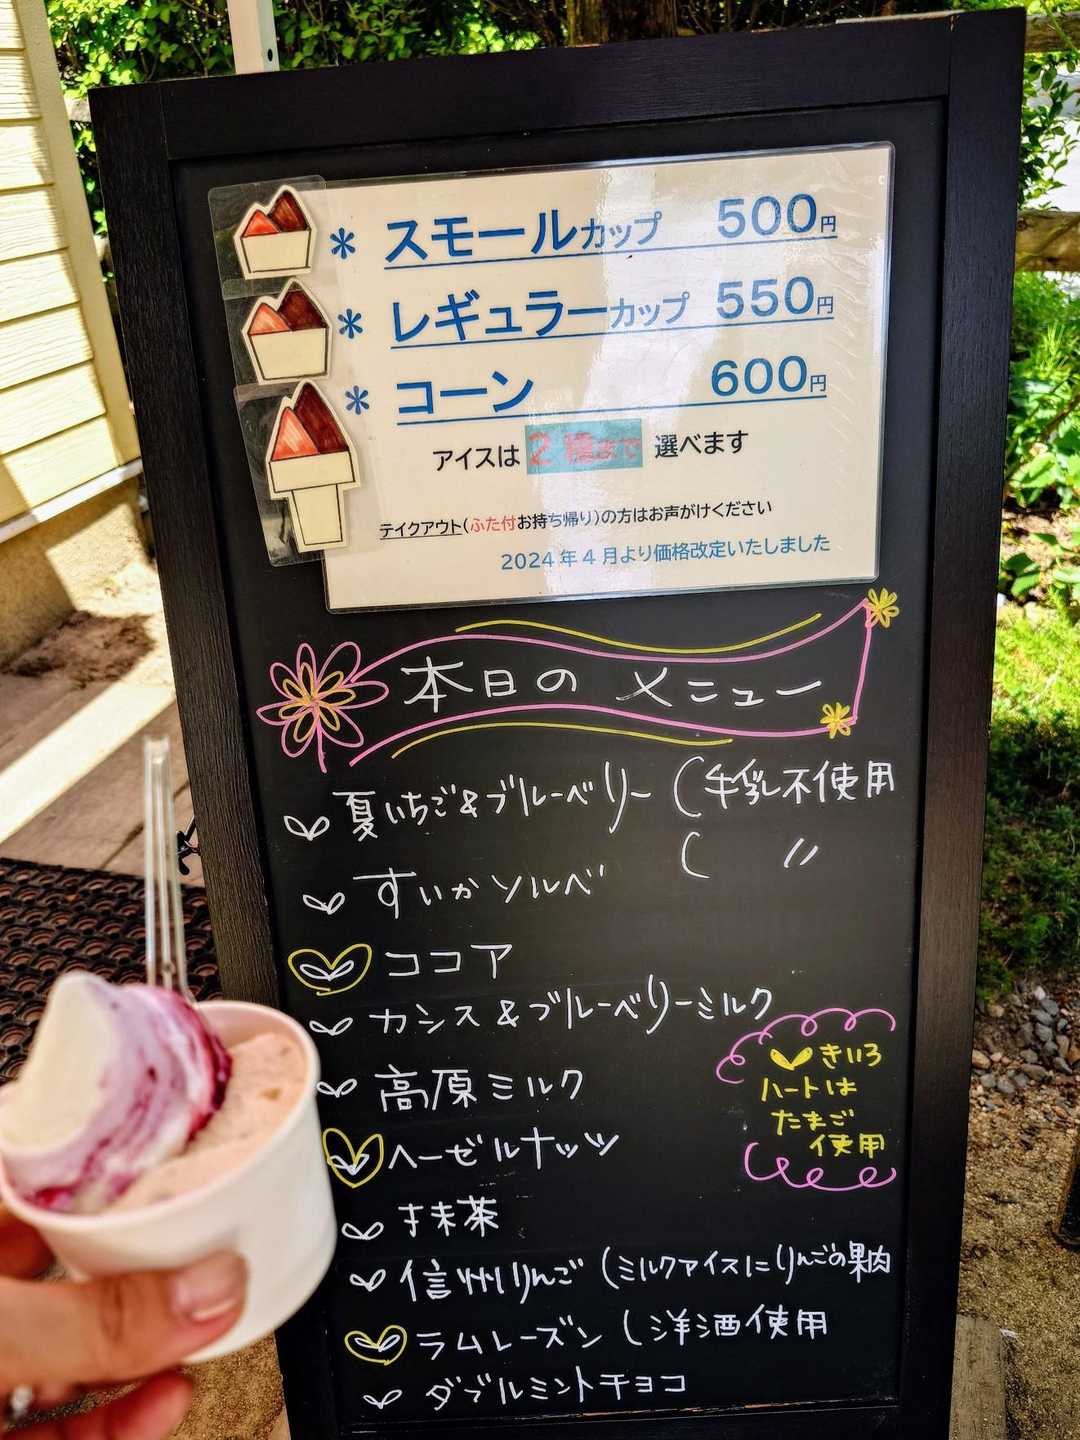 * スモールカップ 500円
* レギュラーカップ 550円
* コーン 600円
アイスは 2種まで 選べます
テイクアウト(ふた付お持ち帰り)の方はお声がけください
2024年4月より価格改定いたしました
本日の メニュー
夏いちご&ブルーベリー (牛乳不使用
すいかソルベ ( 〃
ココア
カシス&ブルーベリーミルク
高原ミルク
ヘーゼルナッツ
きいろ
ハートは
たまご
使用
抹茶
信州りんご (ミルクアイスにりんごの果肉
ラムレーズン (洋酒使用
ダブルミントチョコ